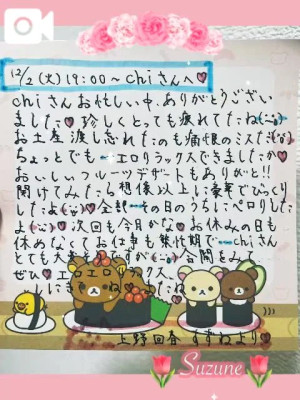 12/2(火)19:00〜chiさんへ♡
chiさんお忙しい中ありがとうござい
ました♡珍しくとっても疲れてたね
お土産渡し忘れたのも痛恨のミスだ
ちょっとでも…エロリラックスできましたか♡
おいしいフルーツデザートもありがと!!
開けてみたら想像以上に豪華でびっくり
したよ♡全部…その日のうちにペロリした
よ♡次回も今月かな。お休みの日も
休めなくてお仕事も繁忙期で…chiさん
とても大変ですが 合間をみ
ぜひ エロエロ ックス
しにき ね
上野回春 すずねより♡
Suzune